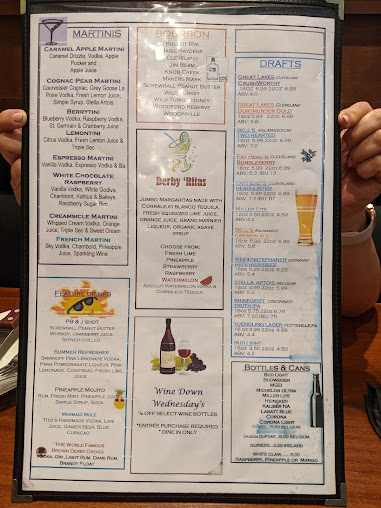 MARTINIS
CARAMEL APPLE MARTINI
Caramel Drizzle, Vodka, Apple
Pucker and
Apple Juice
COGNAC PEAR MARTINI
Courvoisier Cognac, Grey Goose La
Poire Vodka, Fresh Lemon Juice,
Simple Syrup, Stella Artois
BERRYTINI
Blueberry Vodka, Raspberry Vodka,
St. Germain & Cranberry Juice
LEMONTINI
Citrus Vodka, Fresh Lemon Juice &
Triple Sec
ESPRESSO MARTINI
Vanilla Vodka, Espresso Vodka &
WHITE CHOCOLATE
RASPBERRY
Vanilla Vodka, White Godiva,
Chambord, Kahlua & Baileys,
Raspberry Sugar Rim
CREAMSICLE MARTINI
Whipped Cream Vodka, Orange
Juice, Triple Sec & Sweet Cream
FRENCH MARTINI
Sky Vodka, Chambord, Pineapple
Juice, Sparkling Wine
FEATURE DRINKS
PB & J SHOT
SCREWBALL PEANUT BUTTER
WHISKEY, CRANBERRY JUICE,
SERVED CHILLED
SUMMER REFRESHER
SMIRNOFF PINK LEMONADE VODKA,
PAMA POMEGRANATE LIQUEUR, PINK
LEMONADE, COINTREAU, FRESH LIME
JUICE
PINEAPPLE MOJITO
RUM, FRESH MINT, PINEAPPLE JUICE,
SIMPLE SYRUP, SODA
MERMAID MULE
TITO'S HANDMADE VODKA, LIME
JUICE, GINGER BEER, BLUE
CURACAO
THE WORLD FAMOUS
BROWN DERBY GROGG
VODKA, GIN, LIGHT RUM, DARK RUM,
BRANDY FLOAT
BOURBON
BULLEIT RYE
BASIL HAYDEN'S
CLEVELAND
JIM BEAM
KNOB CREEK
MAKERS MARK
SCREWBALL PEANUT BUTTER
WILD TURKEY
WILD TURKEY HONEY
WOODFORD RESERVE
WOODINVILLE
Derby 'Ritas
JUMBO MARGARITAS MADE WITH
CORRALEJO BLANCO TEQUILA,
FRESH SQUEEZED LIME JUICE,
ORANGE JUICE, GRAND MARNIER
LIQUEUR, ORGANIC AGAVE
SYRUP
CHOOSE FROM:
FRESH LIME
PINEAPPLE
STRAWBERRY
RASPBERRY
WATERMELON
ABSOLUT WATERMELON VODKA &
CORRALEJO TEQUILA
Wine Down
Wednesday's
½ OFF SELECT WINE BOTTLES
*ENTRÉE PURCHASE REQUIRED
* DINE IN ONLY
DRAFTS
GREAT LAKES CLEVELAND
CRUSHWORTHY
16OZ 5.99 22OZ 6.99
ABV 4.0
GREAT LAKES CLEVELAND
DORTMUNDER GOLD
16OZ 5.99 22OZ 6.99
ABV 5.8
BELL'S KALAMAZOO, MI
TWO HEARTED
16OZ 5.99 22OZ 6.99
ABV 7.0
FAT HEAD'S CLEVELAND
BUMBLEBERRY
16OZ 5.99 22OZ 6.99
ABV 5.3 IBU 13
FAT HEAD'S CLEVELAND
HEADHUNTER
MILLER LITE
16OZ 3.50 22OZ 4.50
ABV 4.2
BELL'S KALAMAZOO
16OZ 5.99 22OZ 6.99
ABV 5.8
WEIHENSTEPHANER GERMANY
HEFEWEISSBIER
16OZ 5.25 22OZ 6.25
ABV 5.4
STELLA ARTOIS BELGIUM
ABV 5.2
RHINEGEIST CINCINNATI
TRUTH IPA
16OZ 5.75 22OZ 6.75
ABV 7.2 IBU 75
YUENGLING LAGER POTTSVILLE PA
16OZ 3.99 22OZ 4.99
ABV 4.4
BUD LIGHT
16OZ 3.50 22OZ 4.50
ABV 4.2
BOTTLES & CANS
BUD LIGHT
BUDWEISER
MGD
MICHELOB ULTRA
MILLER LITE
HEINEKEN
KALIBER NA
LABATT BLUE
CORONA
CORONA LIGHT
SAISON DUPONT...8.00 BELGIUM
GUINNESS...4.00 IRELAND
WHITE CLAW...5.00
RASPBERRY, PINEAPPLE OR MANGO